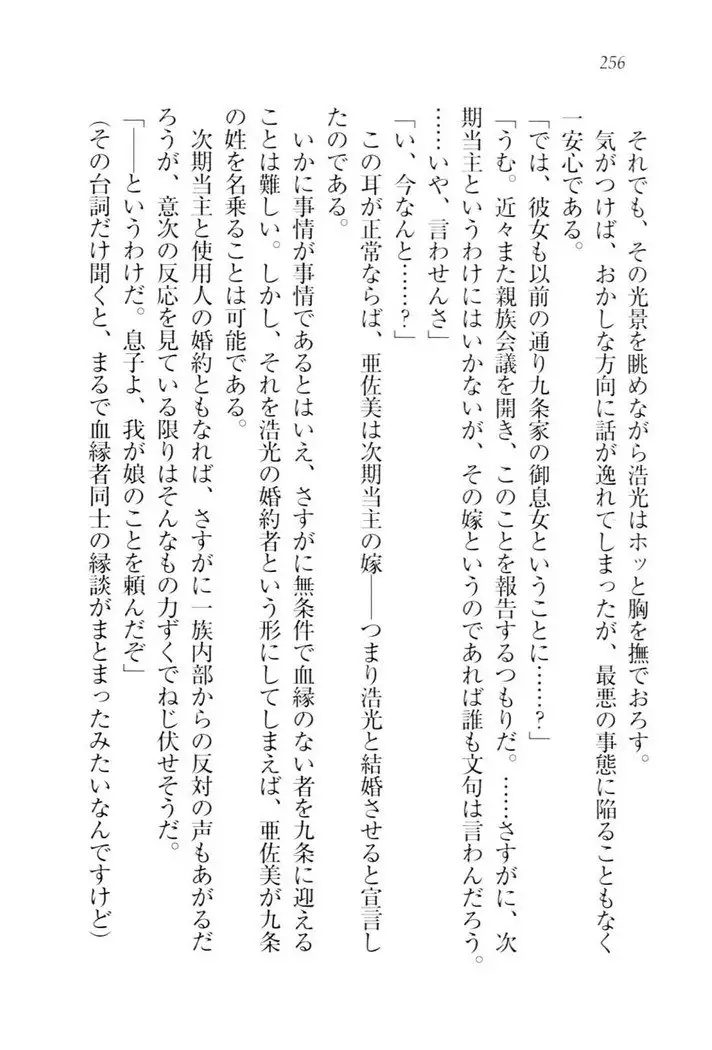 256
それでも、その光景を眺めながら浩光はホッと胸を撫でおろす。
気がつけば、おかしな方向に話が逸れてしまったが、最悪の事態に陥ることもなく
一安心である。
「では、彼女も以前の通り九条家の御息女ということに……?」
「うむ。近々また親族会議を開き、このことを報告するつもりだ。……さすがに、次
期当主というわけにはいかないが、その嫁というのであれば誰も文句は言わんだろう。
……いや、言わせんさ」
「い、今なんと……?」
この耳が正常ならば、亜佐美は次期当主の嫁――つまり浩光と結婚させると宣言し
たのである。
いかに事情が事情であるとはいえ、さすがに無条件で血縁のない者を九条に迎える
ことは難しい。しかし、それを浩光の婚約者という形にしてしまえば、亜佐美が九条
の姓を名乗ることは可能である。
次期当主と使用人の婚約ともなれば、さすがに一族内部からの反対の声もあがるだ
ろうが、意次の反応を見ている限りはそんなもの力ずくでねじ伏せそうだ。
「――というわけだ。息子よ、我が娘のことを頼んだぞ」
(その台詞だけ聞くと、まるで血縁者同士の縁談がまとまったみたいなんですけど)